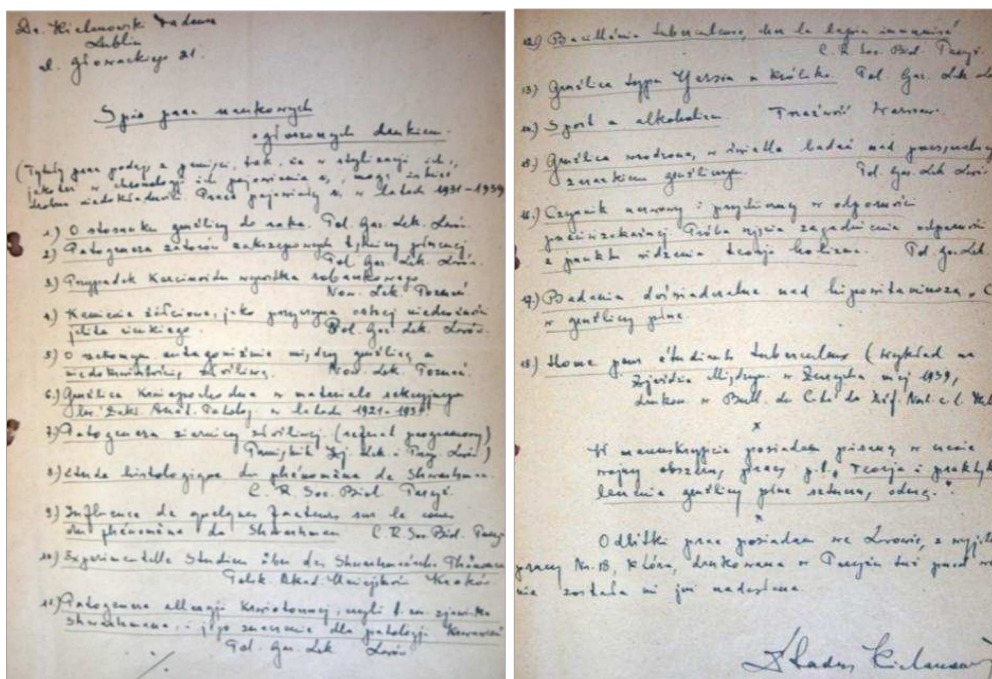 Dr. Kielanowski Tadeusz
Lublin
ul. Głowackiego 21.
Spis prac naukowych
ogłoszonych drukiem.
(Tytuły prac podaję z pamięci, tak, że w stylizacji ich,
jakoteż w chronologii ich pojawienia się, mogą istnieć
drobne niedokładności. Prace pojawiały się w latach 1931-1939
1.) O stosunku gruźlicy do raka. Pol. Gaz. Lek. Lwów.
2.) Patogeneza zatorów zakrzepowych tętnicy płucnej
Pol. Gaz. Lek. Lwów.
3.) Przypadek Karcinoidu wyrostka robaczkowego
Now. Lek. Poznań.
4.) Kamienie żółciowe, jako przyczyna ostrej niedrożności
jelita cienkiego. Pol. Gaz. Lek. Lwów.
5.) O rzekomym antagonizmie między gruźlicą a
niedokrwistością złośliwą. Now. Lek. Poznań.
6.) Gruźlica Krwiopochodna w materiale sekcyjnym
Zakł. Anat. Patolog. w latach 1921-1931
7.) Patogeneza ziarnicy złośliwej (referat programowy)
Pamiętnik Zj. Lek. i Przyr. Lwów)
8.) Etude histologique du phénomène de Shwartzman.
C. R. Soc. Biol. Paryż
9.) Influence de quelques facteurs sur le cours
du phénomène de Shwartzman C. R. Soc. Biol. Paryż
10.) Experimentelle Studien über das Shwartzmansche Phänomen
Polsk. Akad. Umiejętn. Kraków.
11.) Patogeneza allergji Krwiotocznej, czyli t. zw. zjawiska
Shwartzmana, i jego znaczenie dla patologji
Pol. Gaz. Lek. Lwów
12.) Bacillémie tuberculeuse chez le lapin immunisé
C. R. Soc. Biol. Paryż.
13.) Gruźlica typu Yersin u Królika. Pol. Gaz. Lek.
14.) Sport a alkoholizm Trzeźwość Warszaw.
15.) Gruźlica wrodzona, w świetle badań nad przesączalnym
zarazkiem gruźliczym. Pol. Gaz. Lek Lwów
16.) Czynnik nerwowy i psychiczny w odporności
przeciwzakaźnej Próba ujęcia zagadnienia odporności
z punktu widzenia teorji holizmu. Pol. Gaz. Lek.
17.) Badania doświadczalne nad hipowitaminozą "C
w gruźlicy płuc.
18.) Home pour étudiants tuberculeux (wykład na
Zjeździe Międzyn. w Zurychu maj 1939,
drukow. w Bull. du Cté de Déf. Nat. c. l. tub
x
W manuskrypcie posiadam pisaną w czasie
wojny obszerną pracę p.t. "Teorja i praktyka
leczenia gruźlicy płuc sztuczną odmą."
x
Odbitki prac posiadam we Lwowie, z wyjątkiem
pracy Nr. 18, która, drukowana w Paryżu tuż przed
nie została mi już nadesłana.
Tadeusz Kielanowski